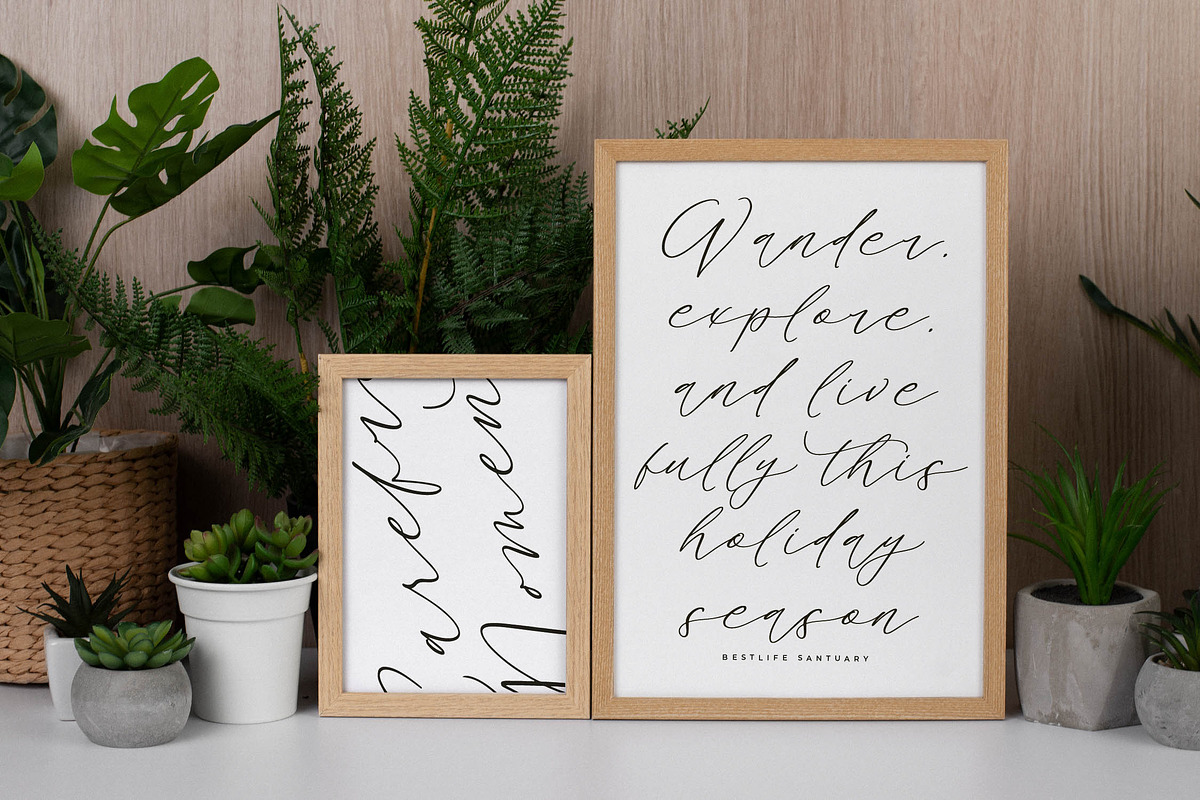 Carefu
Momen
Wander.
explore.
and live
fully this
holiday
season
BESTLIFE SANTUARY